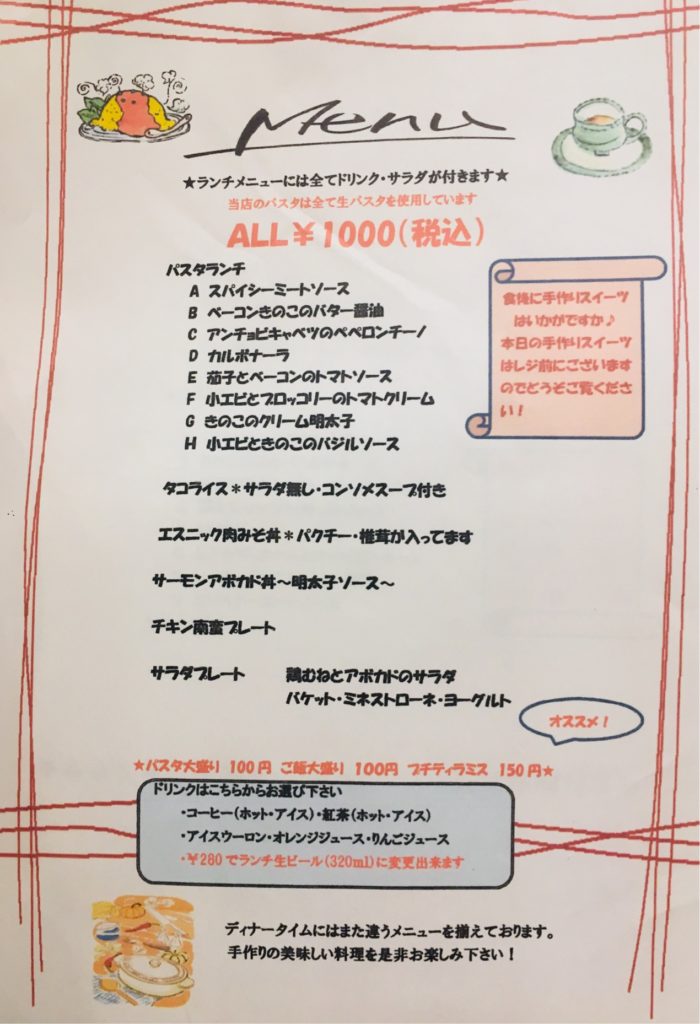 Menu
★ランチメニューには全てドリンク・サラダが付きます★
当店のパスタは全て生パスタを使用しています
ALL￥1000(税込)
パスタランチ
A スパイシーミートソース
B ベーコンきのこのバター醤油
C アンチョビキャベツのペペロンチーノ
D カルボナーラ
E 茄子とベーコンのトマトソース
F 小エビとブロッコリーのトマトクリーム
G きのこのクリーム明太子
H 小エビときのこのバジルソース
食後に手作りスイーツ
はいかがですか♪
本日の手作りスイーツ
はレジ前にございます
のでどうぞご覧くださ
い！
タコライス＊サラダ無し・コンソメスープ付き
エスニック肉みそ丼＊パクチー・椎茸が入ってます
サーモンアボカド丼～明太子ソース～
チキン南蛮プレート
サラダプレート 鶏むねとアボカドのサラダ
バケット・ミネストローネ・ヨーグルト
オススメ！
★パスタ大盛り 100円 ご飯大盛り 100円 プチティラミス 150円★
ドリンクはこちらからお選び下さい
・コーヒー(ホット・アイス)・紅茶(ホット・アイス)
・アイスウーロン・オレンジジュース・りんごジュース
・￥280でランチ生ビール(320ml)に変更出来ます
ディナータイムにはまた違うメニューを揃えております。
手作りの美味しい料理を是非お楽しみ下さい！